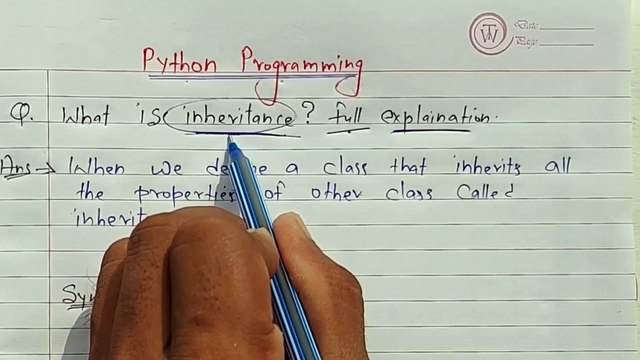 Date
Page
Python Programming
Q. What is inheritance? full explaination.
Ans → When we a class that inherits all
the properties of other class called